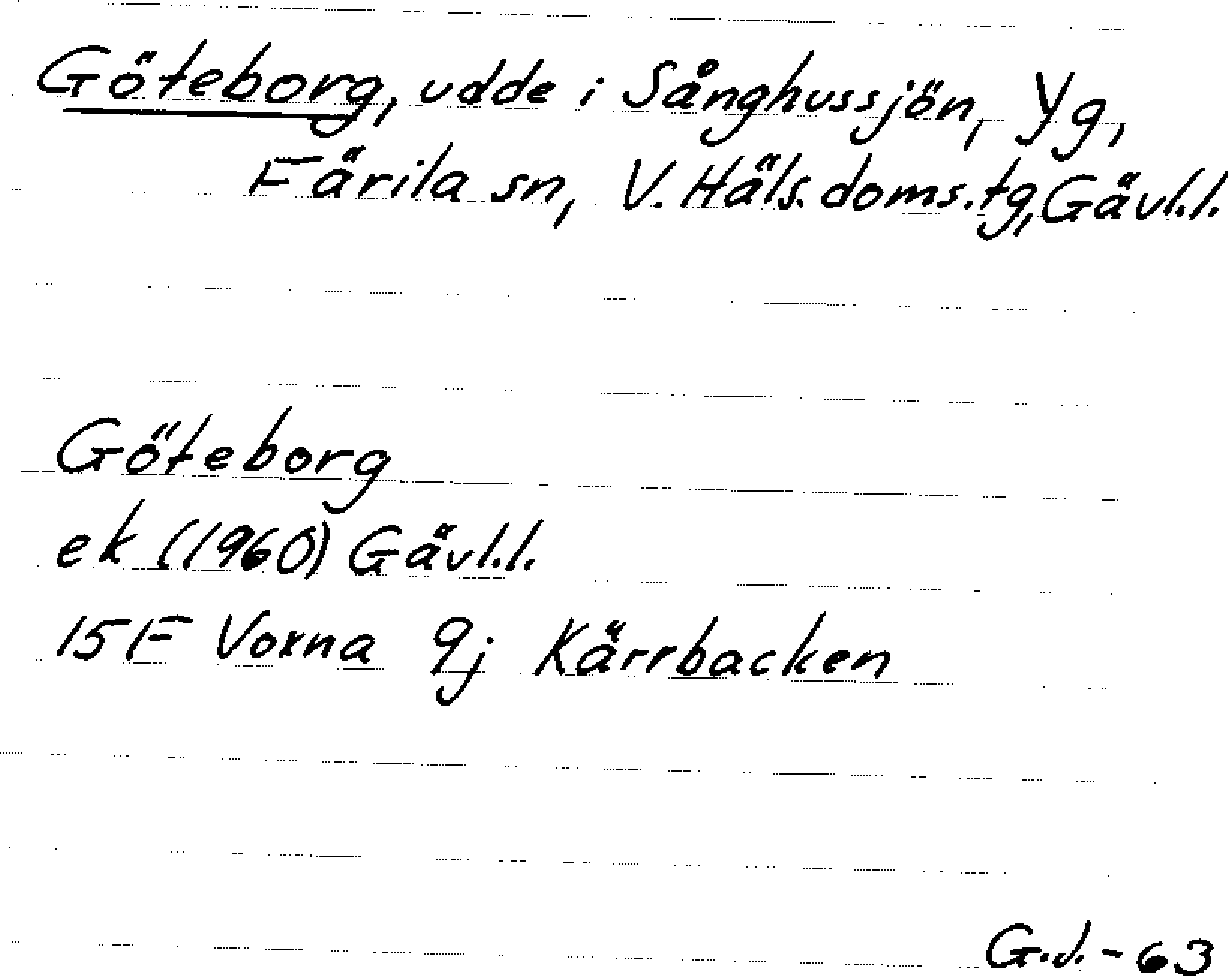 Göteborg, udde i Sånghussjön, Yg,
Färila sn, V. Häls. doms. tg, Gävl.l.
Göteborg
ek (1960) Gävl.l.
15F Voxna 9j Kärrbacken
G.J.-63